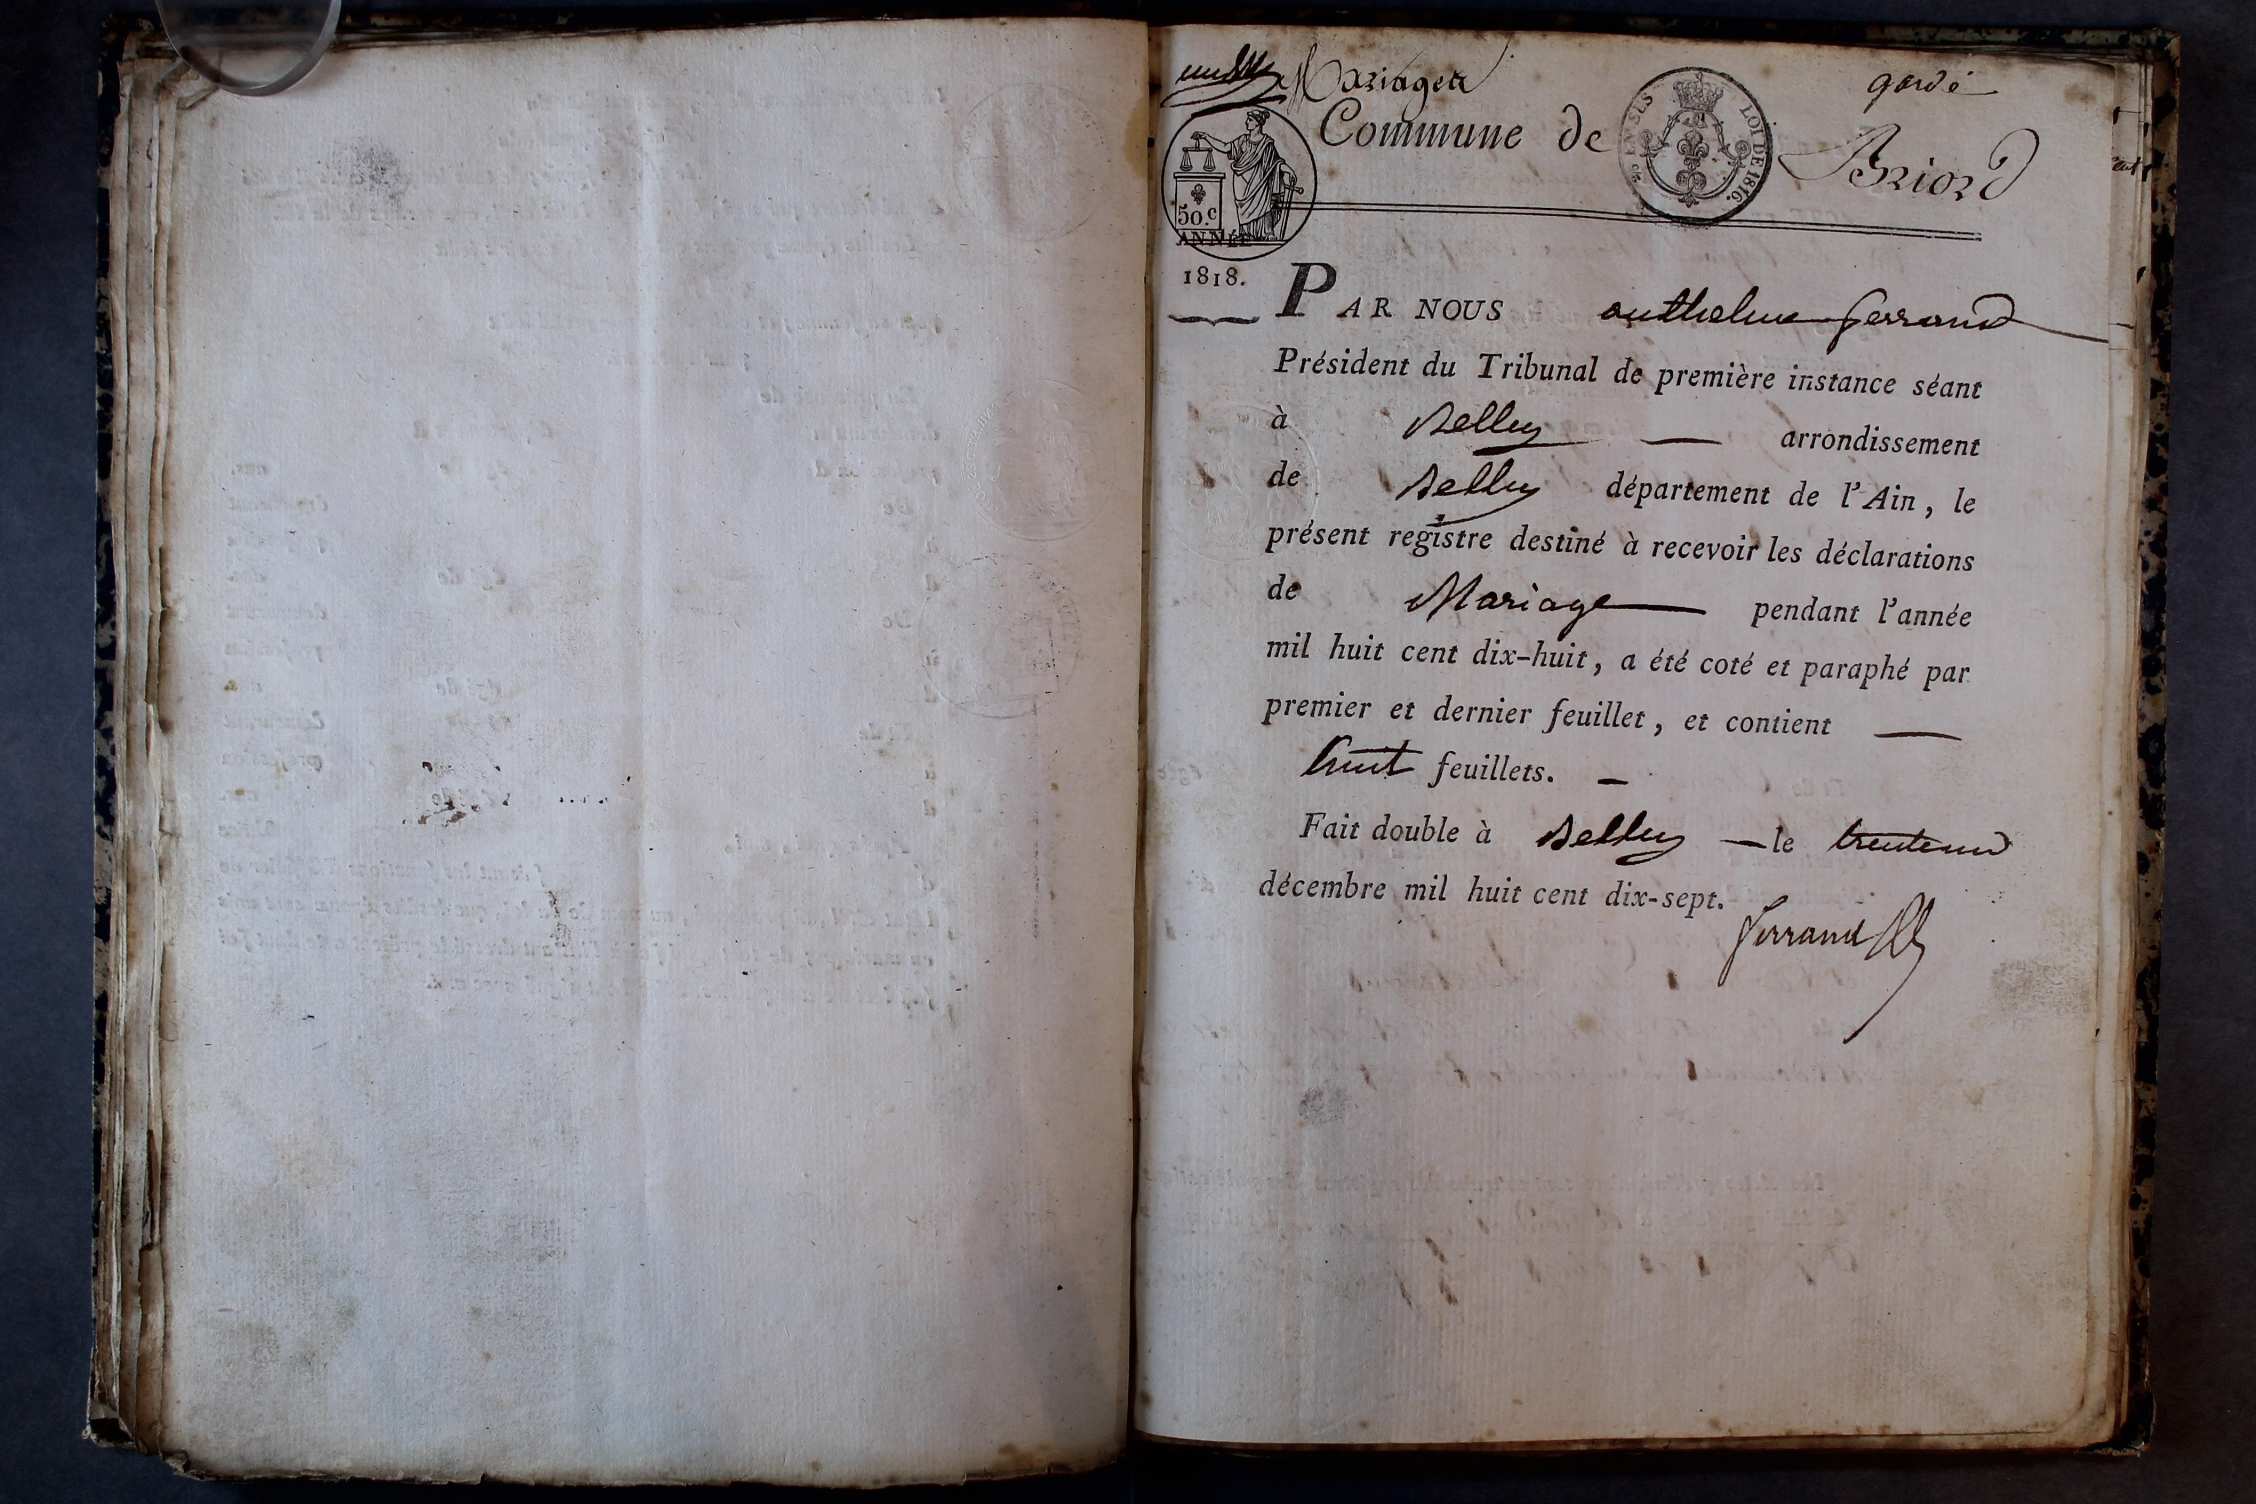 Mariages
gardé
Commune de Briord
LOI DE 1816.
50.c
ANNÉE
1818.
PAR NOUS anthelme ferrand
Président du Tribunal de première instance séant
à Belley arrondissement
de Belley département de l'Ain, le
présent registre destiné à recevoir les déclarations
de Mariage pendant l'année
mil huit cent dix-huit, a été coté et paraphé par
premier et dernier feuillet, et contient
huit feuillets.
Fait double à Belley le trenteun
décembre mil huit cent dix-sept.
ferrand